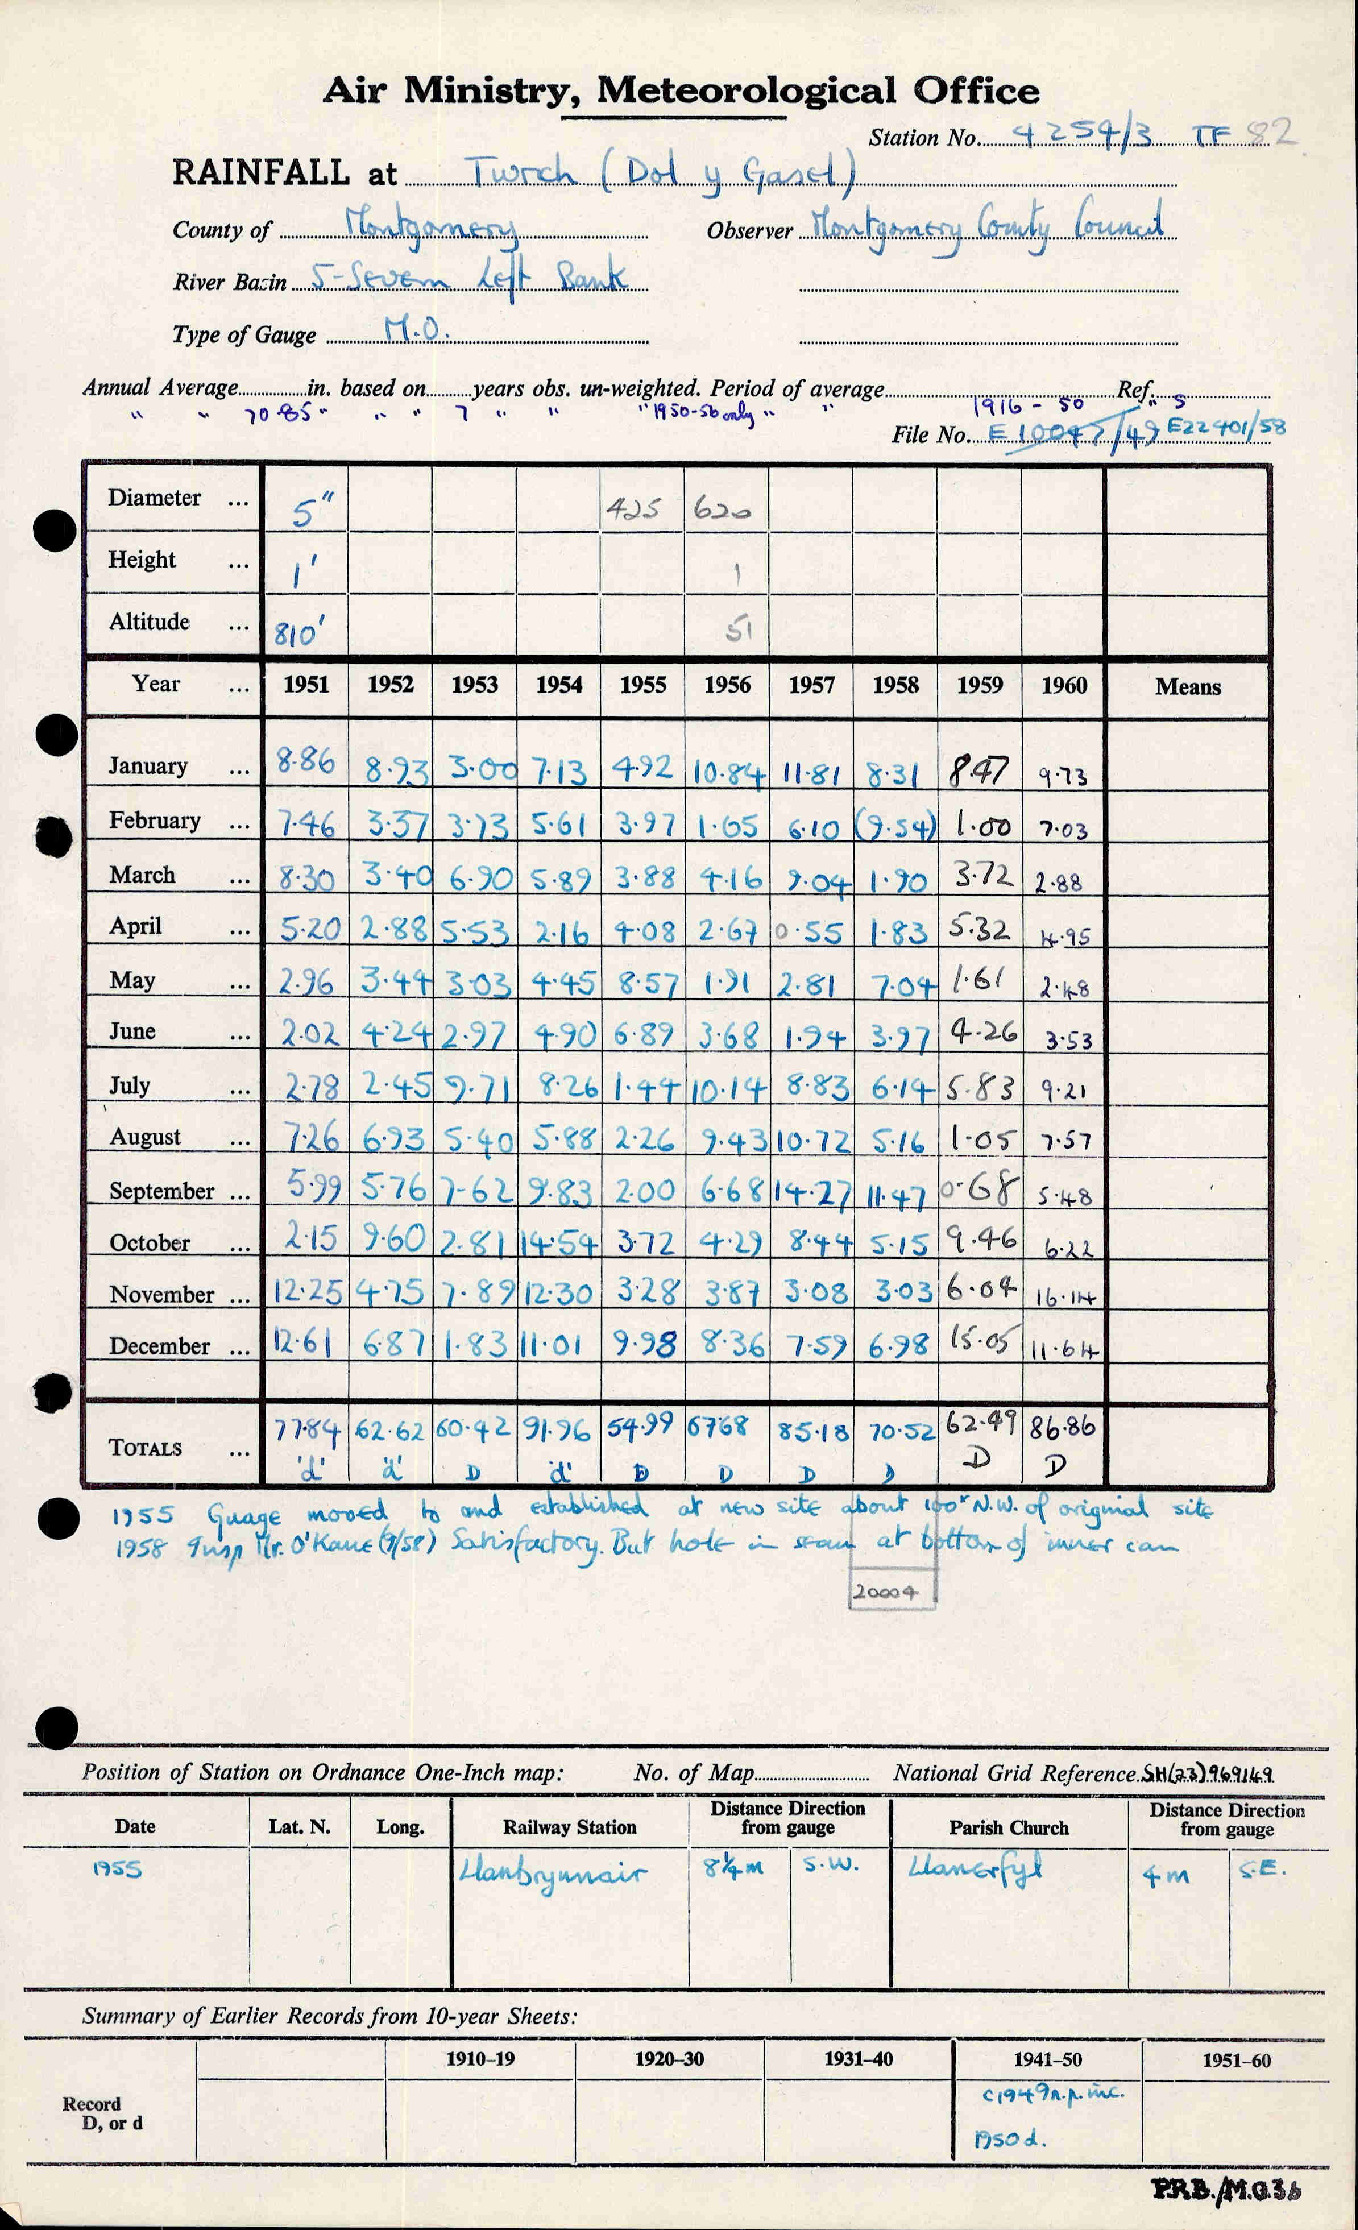 Air Ministry, Meteorological Office
Station No. 4254/3 TF 82
RAINFALL at Twrch (Dol y Gasel)
County of Montgomery Observer Montgomery County Council
River Basin 5-Severn Left Bank
Type of Gauge M.O.
Annual Average in. based on years obs. un-weighted. Period of average Ref.
" " 70.85" " " 7 " " "1950-56 only" " 1916-50 " S
File No. E 10047/49 E22401/58
Diameter ... 5" 425 620
Height ... 1' 1
Altitude ... 810' 51
Year ... 1951 1952 1953 1954 1955 1956 1957 1958 1959 1960 Means
January ... 8.86 8.93 3.00 7.13 4.92 10.84 11.81 8.31 8.47 9.73
February ... 7.46 3.37 3.73 5.61 3.97 1.65 6.10 (9.54) 1.00 7.03
March ... 8.30 3.40 6.90 5.89 3.88 4.16 9.04 1.90 3.72 2.88
April ... 5.20 2.88 5.53 2.16 4.08 2.67 0.55 1.83 5.32 4.95
May ... 2.96 3.44 3.03 4.45 8.57 1.91 2.81 7.04 1.61 2.48
June ... 2.02 4.24 2.97 4.90 6.89 3.68 1.94 3.97 4.26 3.53
July ... 2.78 2.45 9.71 8.26 1.44 10.14 8.83 6.14 5.83 9.21
August ... 7.26 6.93 5.40 5.88 2.26 9.43 10.72 5.16 1.05 7.57
September ... 5.99 5.76 7.62 9.83 2.00 6.68 14.27 11.47 0.68 5.48
October ... 2.15 9.60 2.81 14.54 3.72 4.29 8.44 5.15 9.46 6.22
November ... 12.25 4.75 7.89 12.30 3.28 3.87 3.08 3.03 6.04 16.14
December ... 12.61 6.87 1.83 11.01 9.98 8.36 7.59 6.98 15.05 11.64
TOTALS ... 77.84 62.62 60.42 91.96 54.99 67.68 85.18 70.52 62.49 86.86
'd' 'd' D 'd' D D D D D D
1955 Guage moved to and established at new site about 100x N.W. of original site
1958 Insp Mr. O'Kane (9/58) Satisfactory. But hole in seam at bottom of inner can
20004
Position of Station on Ordnance One-Inch map: No. of Map National Grid Reference SH(23)969149
Date Lat. N. Long. Railway Station Distance Direction from gauge Parish Church Distance Direction from gauge
1955 Llanbrynmair 8¼m S.W. Llanerfyl 4m S.E.
Summary of Earlier Records from 10-year Sheets:
1910–19 1920–30 1931–40 1941–50 1951–60
Record D, or d c1949 n.p. inc.
1950 d.
P.R.B./M.O.3b